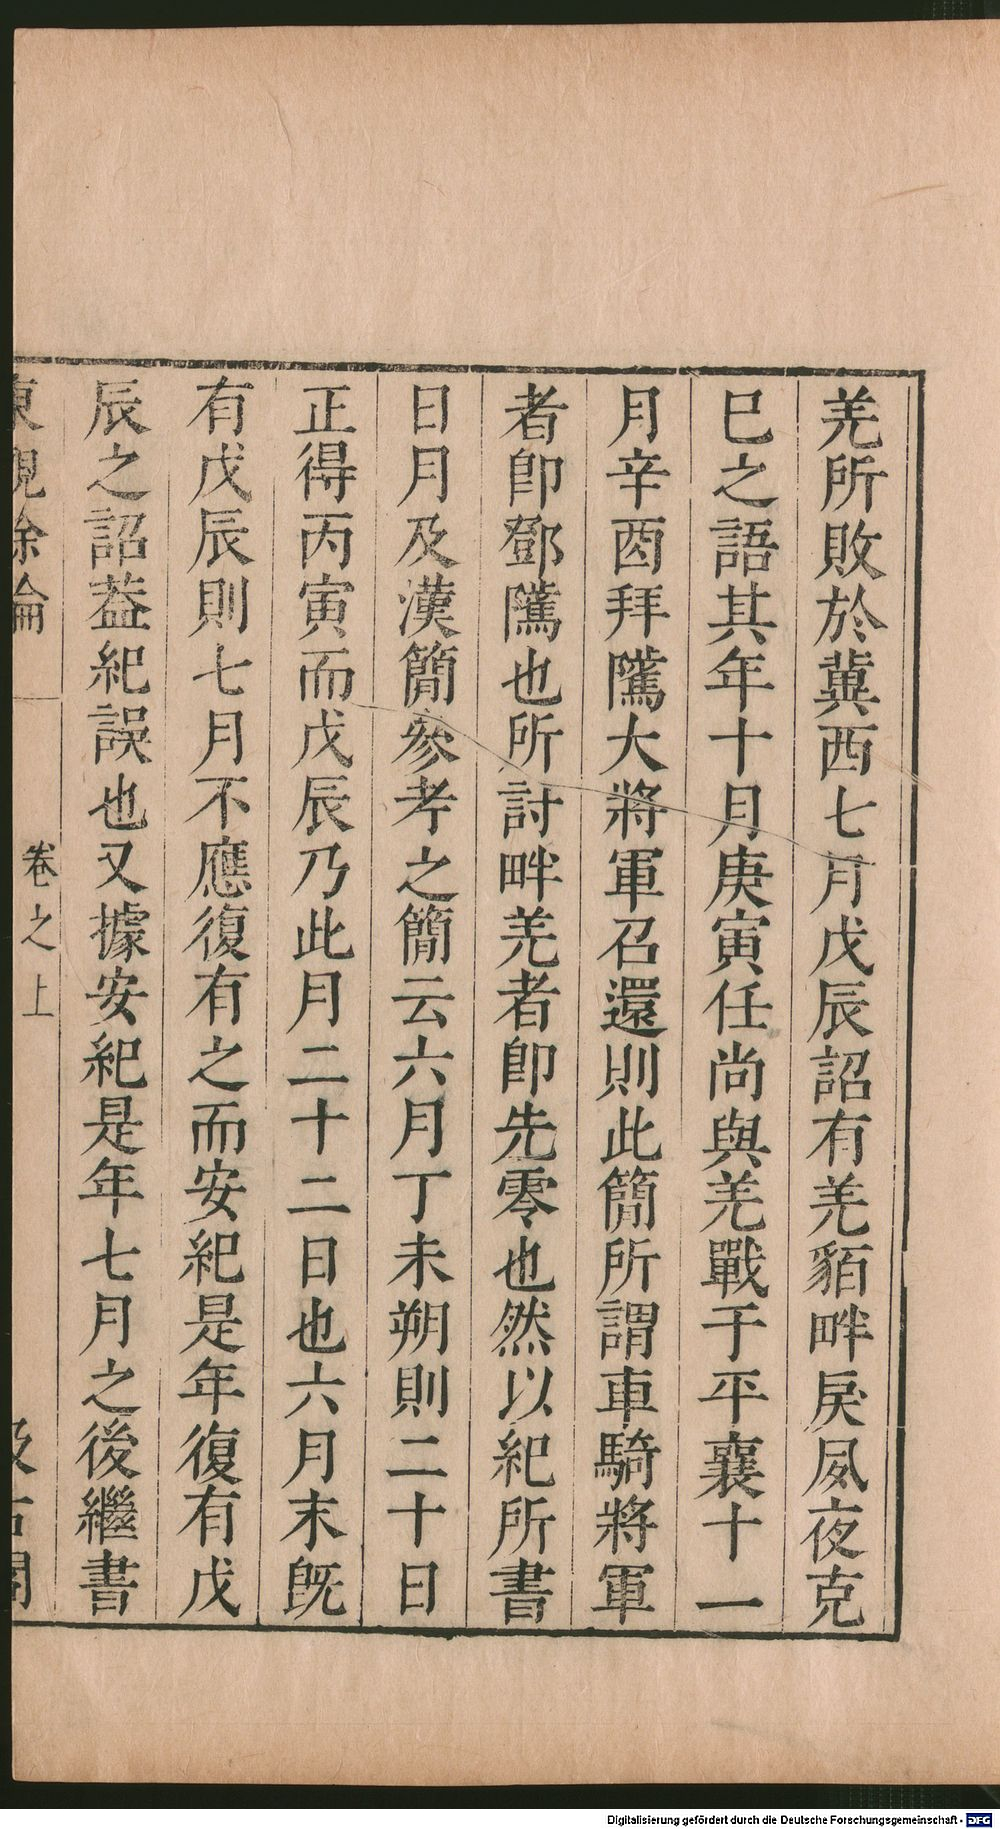 羌所敗於冀西七月戊辰詔有羌貊畔戾夙夜克
巳之語其年十月庚寅任尚與羌戰于平襄十一
月辛酉拜隲大將軍召還則此簡所謂車騎將軍
者即鄧隲也所討畔羌者即先零也然以紀所書
日月及漢簡參考之簡云六月丁未朔則二十日
正得丙寅而戊辰乃此月二十二日也六月末旣
有戊辰則七月不應復有之而安紀是年復有戊
辰之詔葢紀誤也又據安紀是年七月之後繼書
東觀餘論 卷之上 汲古閣
Digitalisierung gefördert durch die Deutsche Forschungsgemeinschaft - DFG